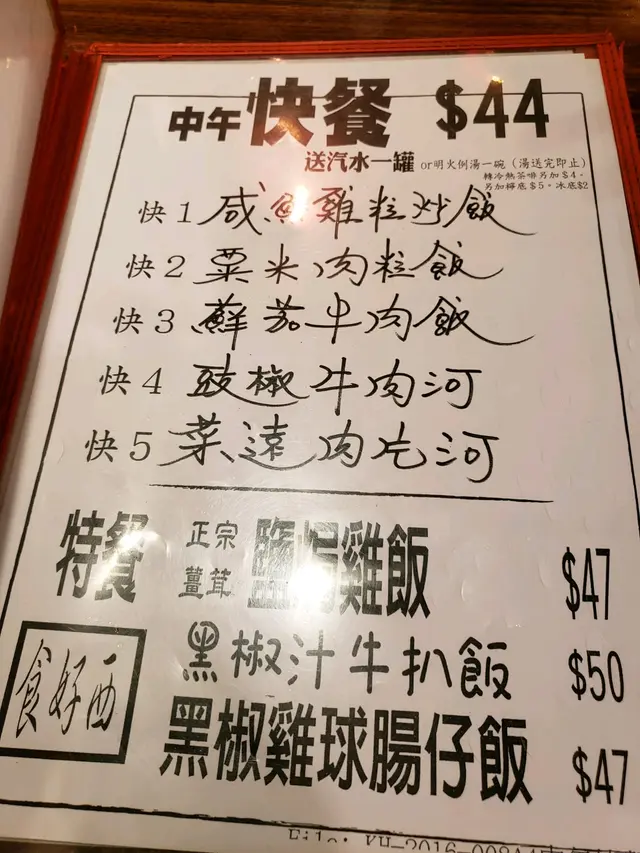 中午快餐 $44
送汽水一罐 or明火例湯一碗（湯送完即止）
轉冷熱茶啡另加$4，
另加檸底$5，冰底$2
快1 咸魚雞粒炒飯
快2 粟米肉粒飯
快3 蘇茄牛肉飯
快4 豉椒牛肉河
快5 菜遠肉片河
特餐 正宗薑茸 鹽焗雞飯 $47
黑椒汁牛扒飯 $50
食好西
黑椒雞球腸仔飯 $47